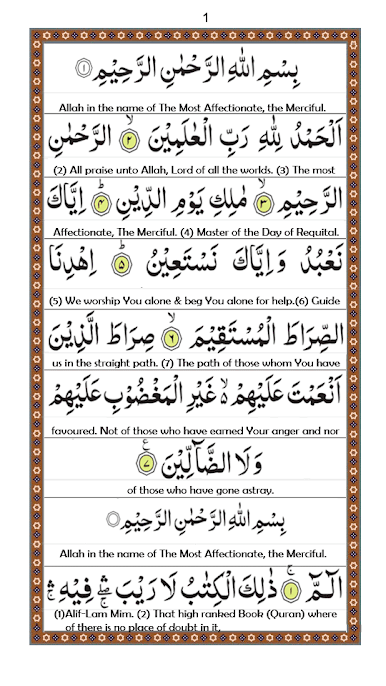 1
بِسْمِ اللهِ الرَّحْمٰنِ الرَّحِيْمِ ۝۱
Allah in the name of The Most Affectionate, the Merciful.
اَلْحَمْدُ لِلّٰهِ رَبِّ الْعٰلَمِيْنَ ۝۲ الرَّحْمٰنِ
(2) All praise unto Allah, Lord of all the worlds. (3) The most
الرَّحِيْمِ ۝۳ مٰلِكِ يَوْمِ الدِّيْنِ ۝۴ اِيَّاكَ
Affectionate, The Merciful. (4) Master of the Day of Requital.
نَعْبُدُ وَ اِيَّاكَ نَسْتَعِيْنُ ۝۵ اِهْدِنَا
(5) We worship You alone & beg You alone for help.(6) Guide
الصِّرَاطَ الْمُسْتَقِيْمَ ۝۶ صِرَاطَ الَّذِيْنَ
us in the straight path. (7) The path of those whom You have
اَنْعَمْتَ عَلَيْهِمْ ۙ غَيْرِ الْمَغْضُوْبِ عَلَيْهِمْ
favoured. Not of those who have earned Your anger and nor
وَلَا الضَّآلِّيْنَ ۝۷
of those who have gone astray.
بِسْمِ اللهِ الرَّحْمٰنِ الرَّحِيْمِ
Allah in the name of The Most Affectionate, the Merciful.
الٓمّٓ ۝۱ ذٰلِكَ الْكِتٰبُ لَا رَيْبَ ۛ فِيْهِ ۛ
(1)Alif-Lam Mim. (2) That high ranked Book (Quran) where
of there is no place of doubt in it,